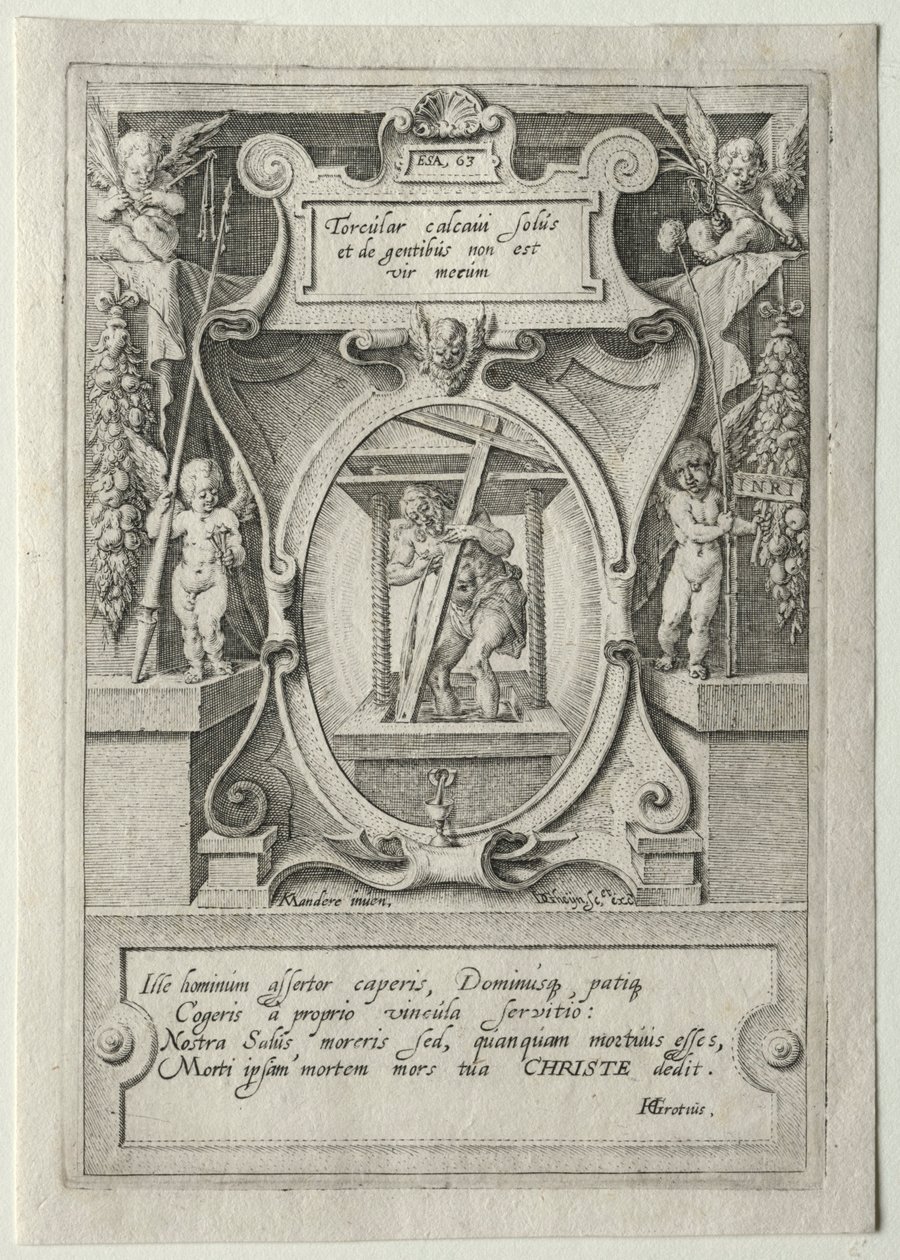 ESA, 63
Torcular calcaui solus
et de gentibus non est
vir mecum
INRI
KMandere inuen,
DGheijn sc, et exc
Ille hominum assertor caperis, Dominusq, patiq
Cogeris à proprio vincula servitio:
Nostra Salus moreris sed, quanquam mortuus esses,
Morti ipsam mortem mors tua CHRISTE dedit.
HGrotius,